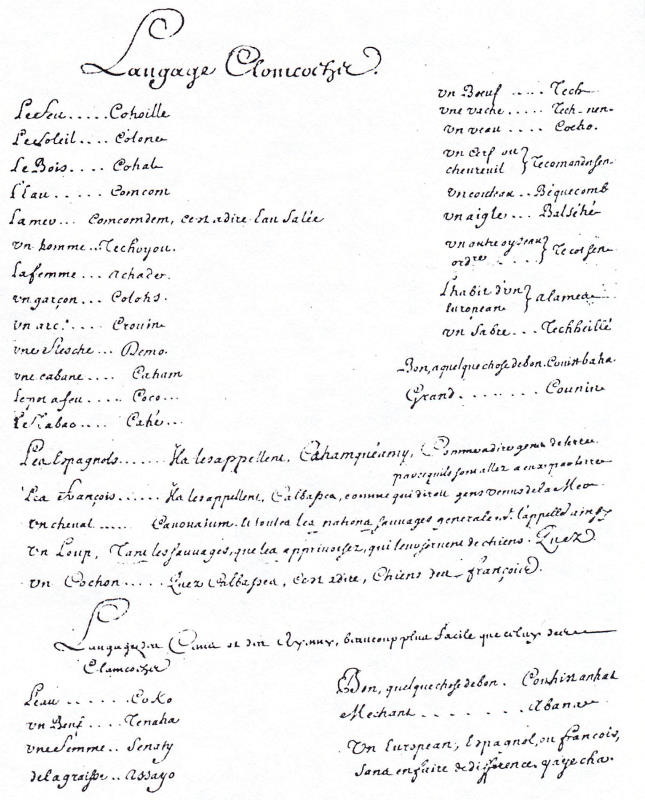 Langage Clomcoches.
Le feu ..... Cohoille
Le soleil .... Colone
Le Bois .... Cohal
L'Eau ..... Comcom
La mer ... Comcomdem, cest adire Eau Salée
vn homme .. Techoyou.
La femme ... Achader.
vn garçon ... Colohs.
vn arc ..... Crouin
vne flesche ... Demo.
vne cabane .... Caham
le pot a feu .... Coco ...
Le Tabac ..... Cahé ...
vn Bœuf ..... Tech
vne vache ..... Tech-nen-
vn veau .... Cocho.
vn Cerf ou
chevreuil } Tecomandsen.
vn corbeau .. Béquecomb
vn aigle ... Balséhé
vn autre oyseau
ordre ..... } Tecotsen
L'habit d'vn
European } alamea
vn Sabre ... Techbeillé
Bon, a quelque chose de bon. Comist baha.
Grand ........ Counin
Les Espagnols ....... Ils les appellent, Cahamquéamy, Comme adire gens de terre
parcequils sont allez a eux par terre
Les François ...... Ils les appellent, Calbassa, comme qui diroit gens venus de la Mer
vn cheval ..... Canouaium. et toutes les nations sauvages generalemt. l'appelle ainsy
vn Loup, Tant les sauvages, que les apprivoisez, qui leur servent de chiens. Quez
vn Cochon ..... Quez Calbassa, cest adire, Chiens des françois.
Langage des Cenis et des Aynays, beaucoup plus facile que celuy des
Clamcoches
L'eau ...... CoKo
vn Beuf .... Tenaha
vne femme .. Senaty
de la graisse .. Assayo
Bon, quelque chose de bon. Couhinanhat
Mechant ....... Abanae
Vn European, Espagnol, ou françois,
sans en faire de difference. qayecha.